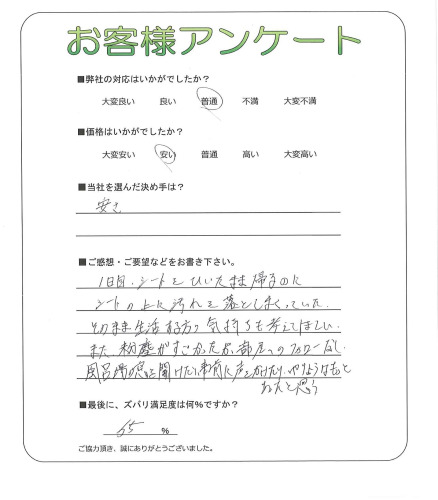 お客様アンケート
■弊社の対応はいかがでしたか？
大変良い 良い 普通 不満 大変不満
■価格はいかがでしたか？
大変安い 安い 普通 高い 大変高い
■当社を選んだ決め手は？
安さ
■ご感想・ご要望などをお書き下さい。
1日目、シートをひいたまま帰るのに
シートの上に汚れを落としまくっていた。
そのまま生活する方の気持ちも考えてほしい。
また、粉塵がすごかったが、部屋へのフォローなし。
風呂場の窓を開けたり、事前に声をかけたり、やりようはもっと
あったと思う
■最後に、ズバリ満足度は何%ですか？
65 %
ご協力頂き、誠にありがとうございました。